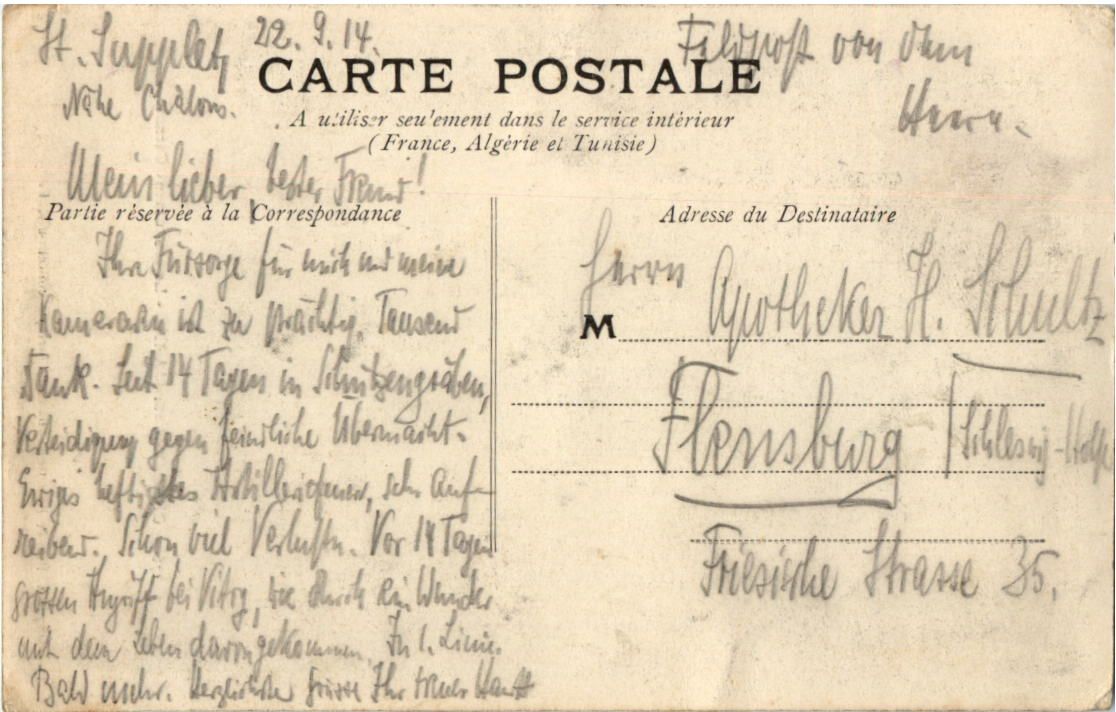 St. Supplet, 22. 9. 14.
Nähe Châlons.
Feldpost von dem
Heere.
CARTE POSTALE
A utiliser seulement dans le service intérieur
(France, Algérie et Tunisie)
Mein lieber, bester Freund!
Partie réservée à la Correspondance
Ihre Fürsorge für mich und meine
Kameraden ist zu prächtig. Tausend
Dank. Seit 14 Tagen in Schützengräben,
Verteidigung gegen feindliche Übermacht.
Ewiges heftigstes Artilleriefeuer, sehr auf-
reibend. Schon viel Verluste. Vor 14 Tagen
grossen Angriff bei Vitry, wie durch ein Wunder
mit dem Leben davongekommen. In 1. Linie.
Bald mehr. Herzlichste Grüsse Ihr treuer
Adresse du Destinataire
Herrn
M Apotheker H. Schultz
Flensburg
Schleswig-Holst
Friesische Strasse 35.